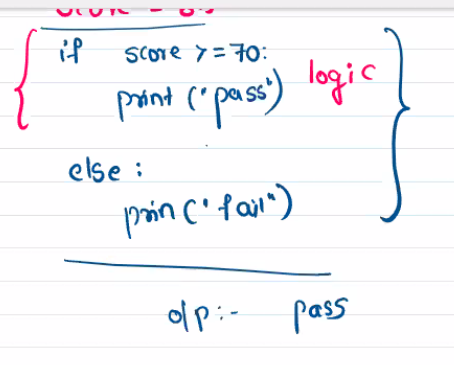 if score >= 70:
print ('pass') logic
else :
prin ('fail")
o/p :- pass